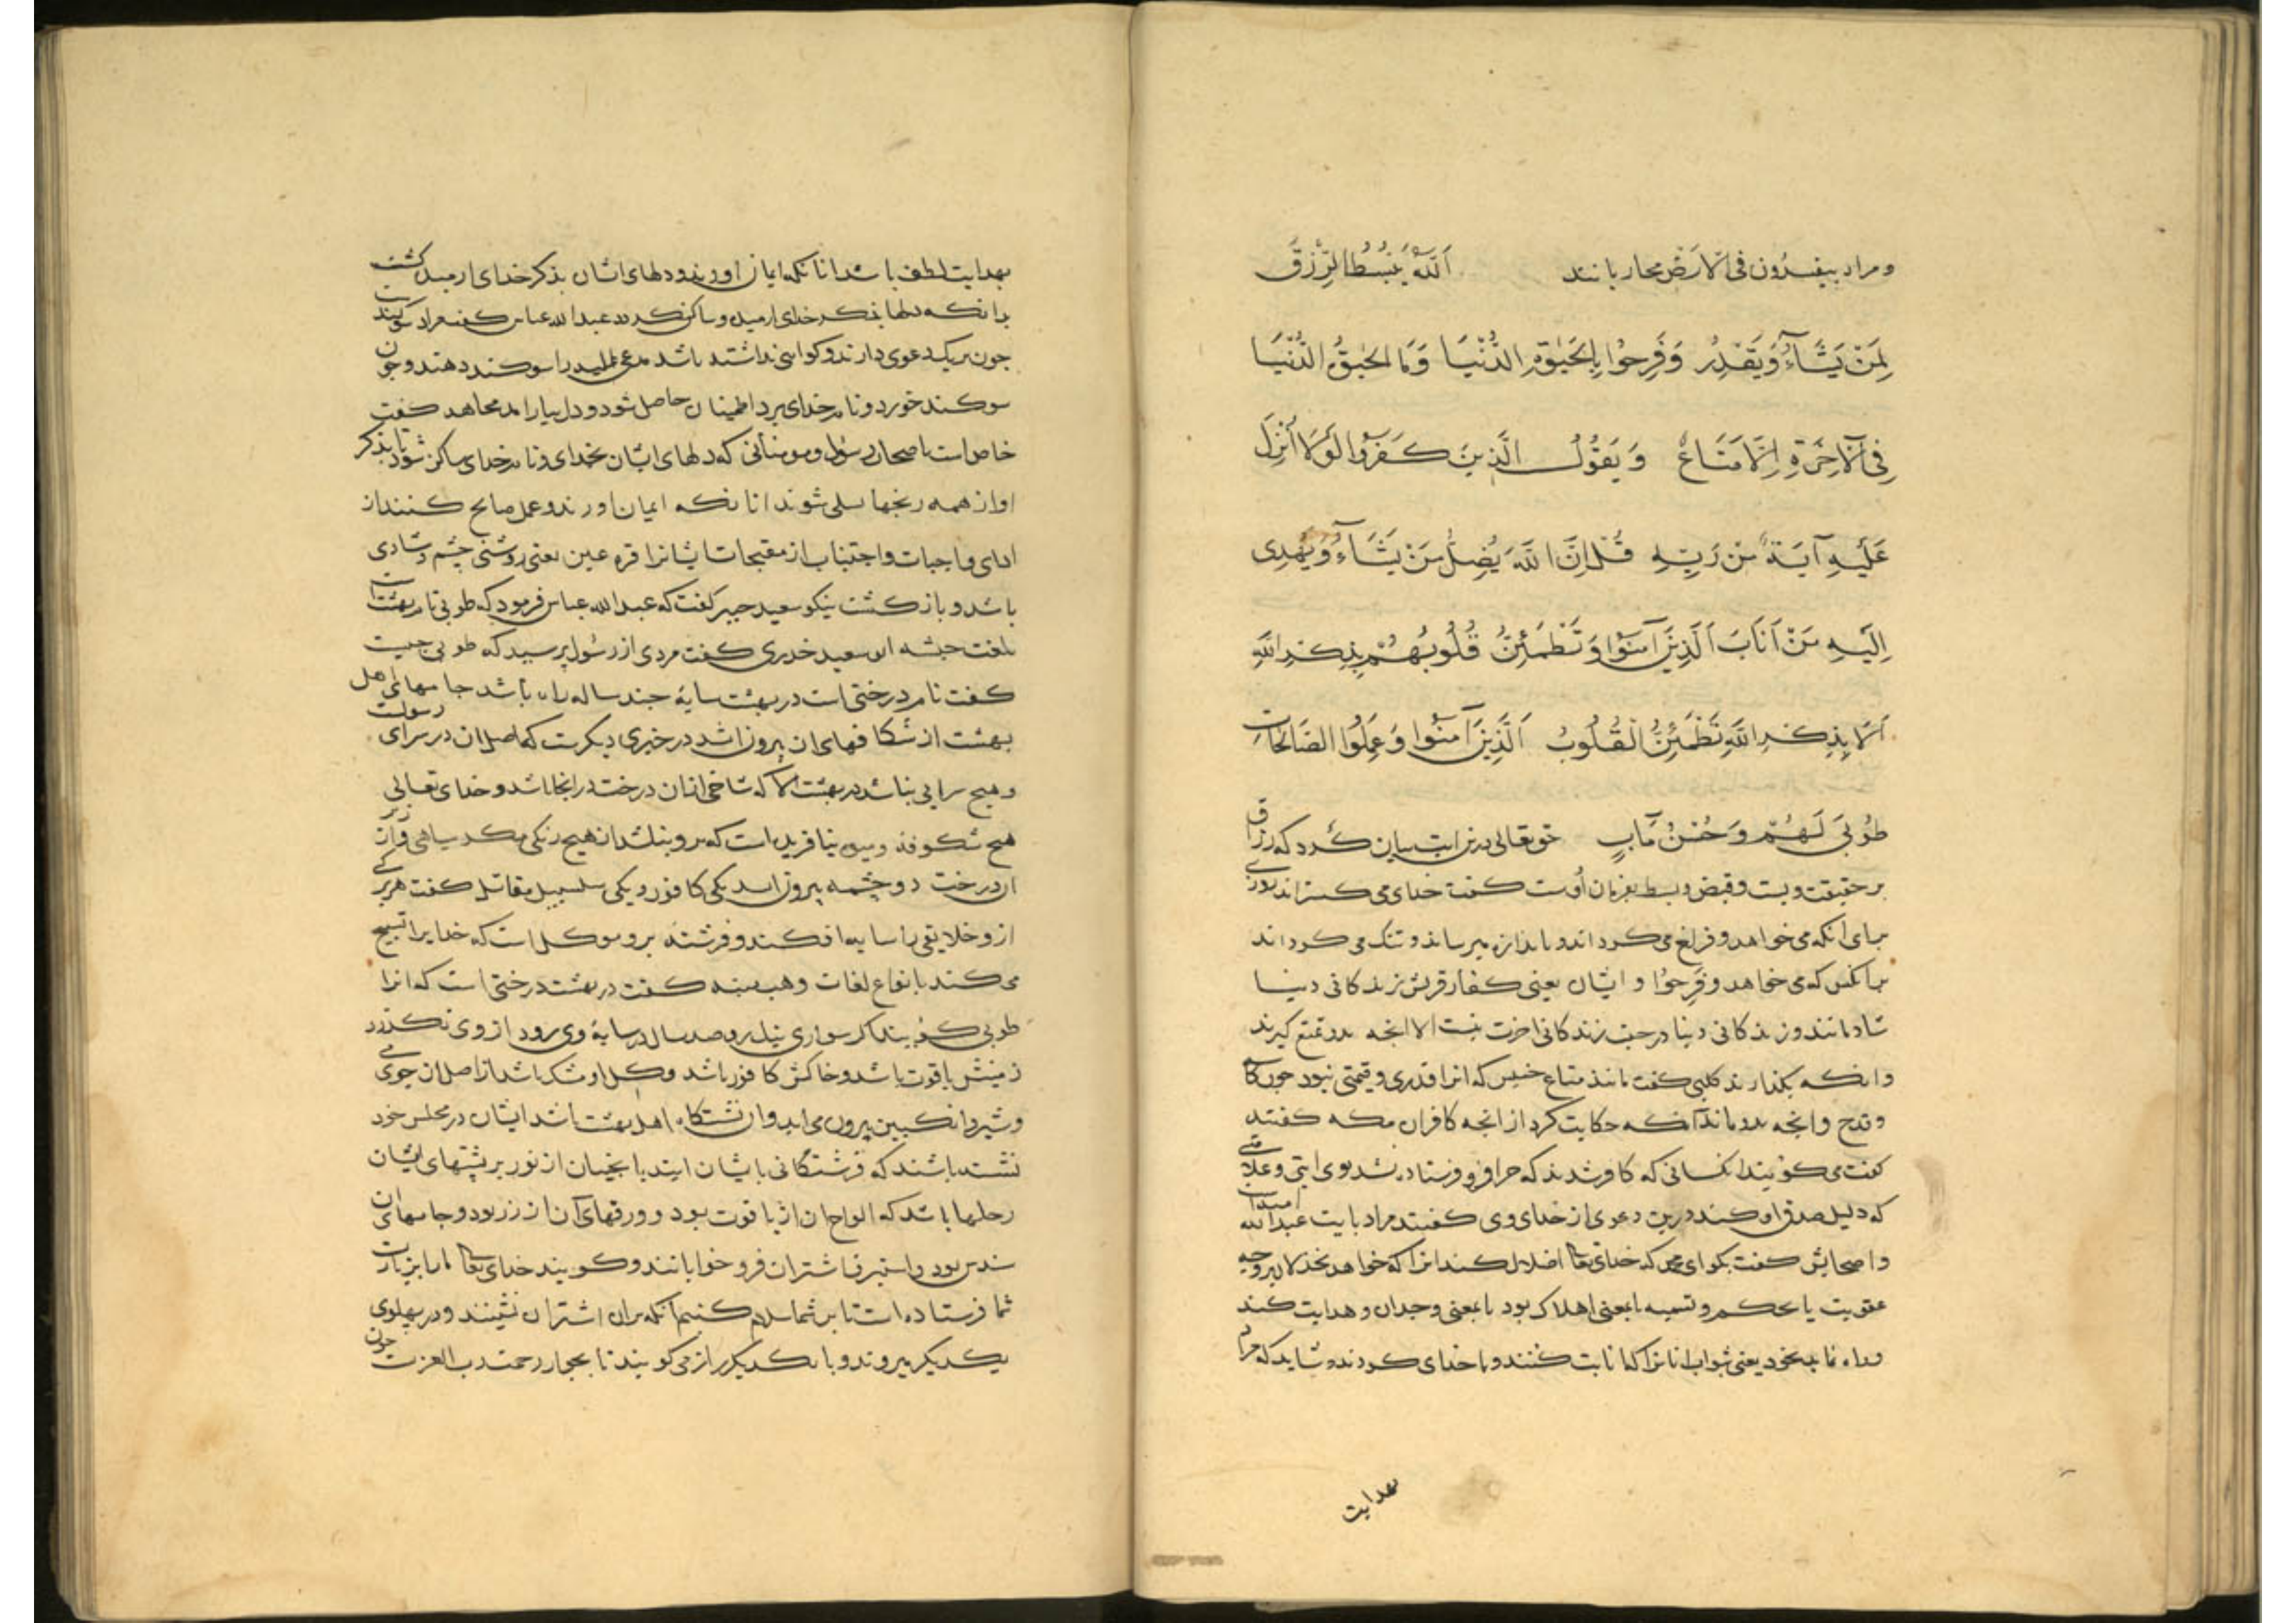 ومراد بیفسدون فی الارض محاربانند اَللّٰهُ یَبْسُطُ الرِّزْقَ
لِمَنْ یَشَآءُ وَیَقْدِرُ وَفَرِحُوا بِالْحَیٰوةِ الدُّنْیَا وَمَا الْحَیٰوةُ الدُّنْیَا
فِی الْآخِرَةِ اِلَّا مَتَاعٌ وَیَقُولُ الَّذِینَ کَفَرُوا لَوْلَا اُنْزِلَ
عَلَیْهِ آیَةٌ مِنْ رَبِّهِ قُلْ اِنَّ اللّٰهَ یُضِلُّ مَنْ یَشَآءُ وَیَهْدِی
اِلَیْهِ مَنْ اَنَابَ اَلَّذِینَ آمَنُوا وَتَطْمَئِنُّ قُلُوبُهُمْ بِذِکْرِ اللّٰهِ
اَلَا بِذِکْرِ اللّٰهِ تَطْمَئِنُّ الْقُلُوبُ اَلَّذِینَ آمَنُوا وَعَمِلُوا الصَّالِحَاتِ
طُوبَی لَهُمْ وَحُسْنُ مَآبٍ حق تعالی درین ایت بیان کرد که رزاق
بر حقیقت ویست وقبض وبسط بفرمان اوست کفت خدای می کستراند روزی
برای انکه می خواهد وفراغ می کرداند وباندازه میرساند وتنک می کرداند
برانکس که می خواهد وفَرِحُوا وایشان یعنی کفار قریش بزندکانی دنیا
شادمانند وزندکانی دنیا در جنب زندکانی اخرت نیست الا انجه بدو تمتع کیرند
وانکه بکذارند کلبی کفت مانند متاع خسیس که انرا قدری وقیمتی نبود جون کاسه
وقدح وانجه بدو ماند انکه حکایت کرد از انجه کافران مکه کفتند
کفت می کویند انکسانی که کافر شدند که جرا فرو فرستاده نشد بوی ایتی وعلامتی
که دلیل صدق او کند درین دعوی از خدای وی کفتند مراد بایت عبدالله امیه است
واصحابش کفت بکو ای محمد که خدای تعالی اضلال کند انرا که خواهد بخذلان بر وجه
عقوبت یا بحکم وتسمیه یا بمعنی اهلاک بود یا بمعنی وجدان وهدایت کند
وراه نماید بخود یعنی بثواب انانرا که انابت کنند وبا خدای کردند وشاید که مراد
بهدایت
بهدایت لطف باشد انانکه ایمان اورند ودلهای ایشان بذکر خدای ارمیده کشت
بدانکه دلها بذکر خدای ارمیده وساکن کردد عبدالله عباس کفت مراد سوکند است
جون بر یک دعوی دارند وکواهی نداشته باشد مدعی علیه را سوکند دهند وجون
سوکند خورد ونام خدای برد اطمینان حاصل شود ودل بیارامد مجاهد کفت
خاص است باصحاب رسول ومومنانی که دلهای ایشان بخدای ونام خدای ساکن شود تا بذکر
او از همه رنجها تسلی شوند انانکه ایمان اورند وعمل صالح کنند از
ادای واجبات واجتناب از مقبحات ایشانرا قره عین یعنی روشنی جشم وشادی
باشد وبازکشت نیکو سعید جبیر کفت که عبدالله عباس فرمود که طوبی نام بهشت است
بلغت حبشه ابو سعید خدری کفت مردی از رسول پرسید که طوبی جیست
کفت نام درختی است در بهشت سایۀ جند ساله راه باشد جامهای اهل
بهشت از شکافهای ان بیرون اید در خبری دیکرست که اصل ان در سرای رسولست
وهیج سرایی نباشد در بهشت الا که شاخی از ان درخت در انجا باشد وخدای تعالی
هیج شکوفه ومیوه نیافریده است که برو نباشد از هیج رنکی مکر سیاهی واز زیر
ان درخت دو جشمه بیرون اید یکی کافور ویکی سلسبیل مقاتل کفت هر برکی
ازو خلایقی را سایه افکند وفرشتۀ برو موکل است که خدایرا تسبیح
می کند بانواع لغات وهب منبه کفت در بهشت درختی است که انرا
طوبی کویند اکر سواری نیک رو صد سال در سایۀ وی رود از وی نکذرد
زمینش یاقوت باشد وخاکش کافور باشد وکل او مشک باشد از اصل ان جوی می
وشیر وانکبین بیرون می اید وان نشستکاه اهل بهشت باشد ایشان در مجلس خود
نشسته باشند که فرشتکانی بایشان ایند با نجیبان از نور بر پشتهای ایشان
رحلها باشد که الواح ان از یاقوت بود وورقهای آن از زر بود وجامهای ان
سندس بود واستبرق اشتران فرو خوابانند وکویند خدای تعالی ما را بزیارت
شما فرستاده است تا بر شما سلام کنیم انکه بران اشتران نشینند ودر پهلوی
یکدیکر میروند وبا یکدیکر راز می کویند تا بجوار رحمت رب العزت جون